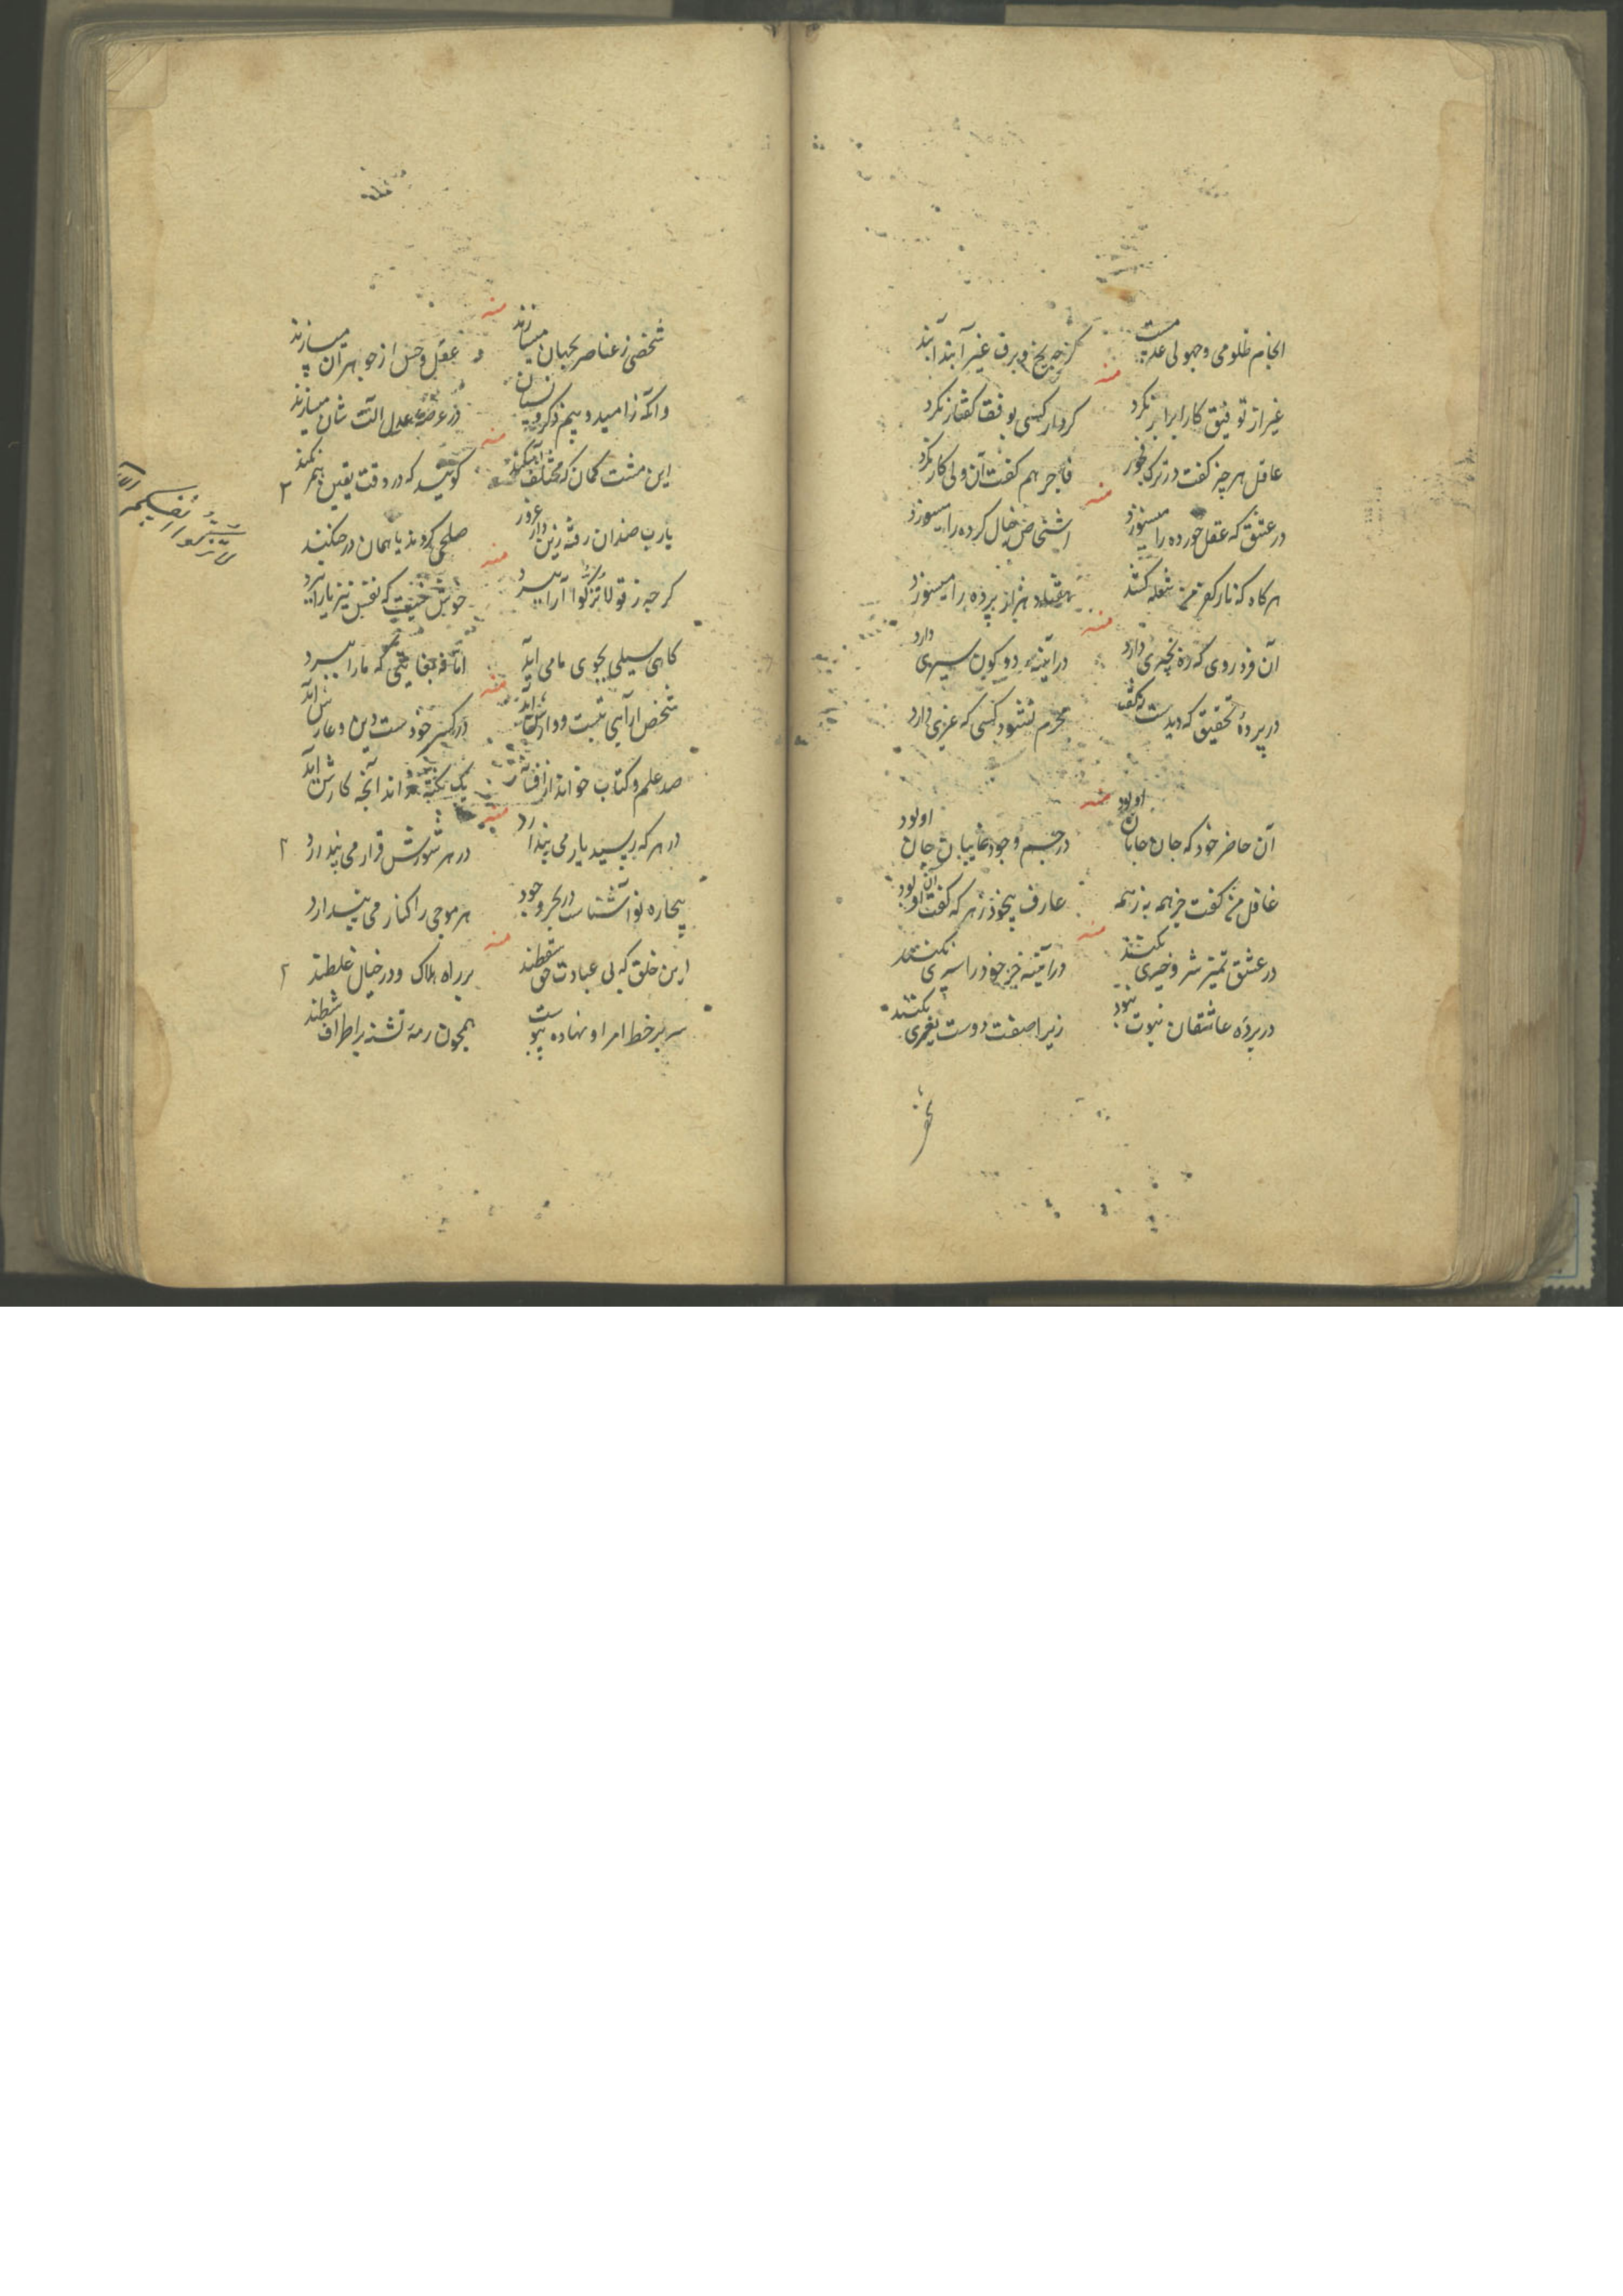 انجام ظلومی و جهولی عدمیست
گرچه یخ و برف غیر آبند آبند
منه
غیر از توفیق کار ابرار نکرد
کردار کسی بوفق گفتار نکرد
عاقل هر چیز گفت در ترک فجور
فاجر هم گفت آن ولی کار نکرد
منه
در عشق که عقل خورده را میسوزد
اشخاص خیال کرده را میسوزد
هر گاه که نار کفر من شعله کشد
هفتاد هزار پرده را میسوزد
منه
آن فرد روی که ره بچیزی دارد
در آینه دو کون سیری دارد
در پردهٔ تحقیق که دیدست
محرم نشود کسی که غیری دارد
منه
آن حاضر خود که جان جانان او بود
در جسم وجود غایبان جان او بود
غافل من گفت جز همه به ز همه
عارف بیخود ز هر که گفت آن او بود
منه
در عشق تمیز شر و خیری نکنند
در آینه جز خود را سیری نکنند
در پرده عاشقان نبوت نبود
زیرا صفت دوست بغیری نکنند
منه
شخصی ز عناصر بجهان میسازند
عقل و حس از جوهر آن میسازند
وانگه ز امید و بیم و ذکر و نسیان
در عرصه عدل آلت شان میسازند
منه
این مشت گمان که مختلف
گویید که در وقت یقین
یارب چندان رفته زین دار غرور
صلحی کردند یا همان در جنگند
منه
گرچه ز تو لا تزکوا آرا میبرد
خوش نیست که نفس نیز یارا میبرد
گاهی سیلی بجوی ما می آید
اما نه بغایتی که ما را میبرد
منه
در کسر خودست دین و عارش آید
صد علم و کتاب خواند از
یک نکته نخواند آنچه کارش آید
منه
در هر که رسید یار می پندارد
در هر شورش قرار می پندارد
بیچاره نو آشناست در بحر وجود
هر موجی را کنار می پندارد
منه
این خلق که بی عبادت حق سقطند
بر راه هلاک و در خیال غلطند
سر بر خط امر او نهاده پیوست
همچون رمه تشنه بر اطراف شطند